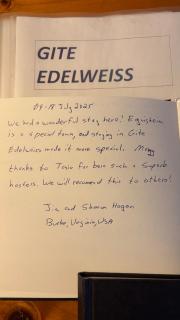 GITE
EDELWEISS
09-18 July 2025
We had a wonderful stay here! Eguisheim
is a special town, and staying in Gite
Edelweiss made it more special. Many
thanks to for being such a superb
hostess. We will recommend this to others!
Jim and Sharon Hogan
Burke, Virginia, USA